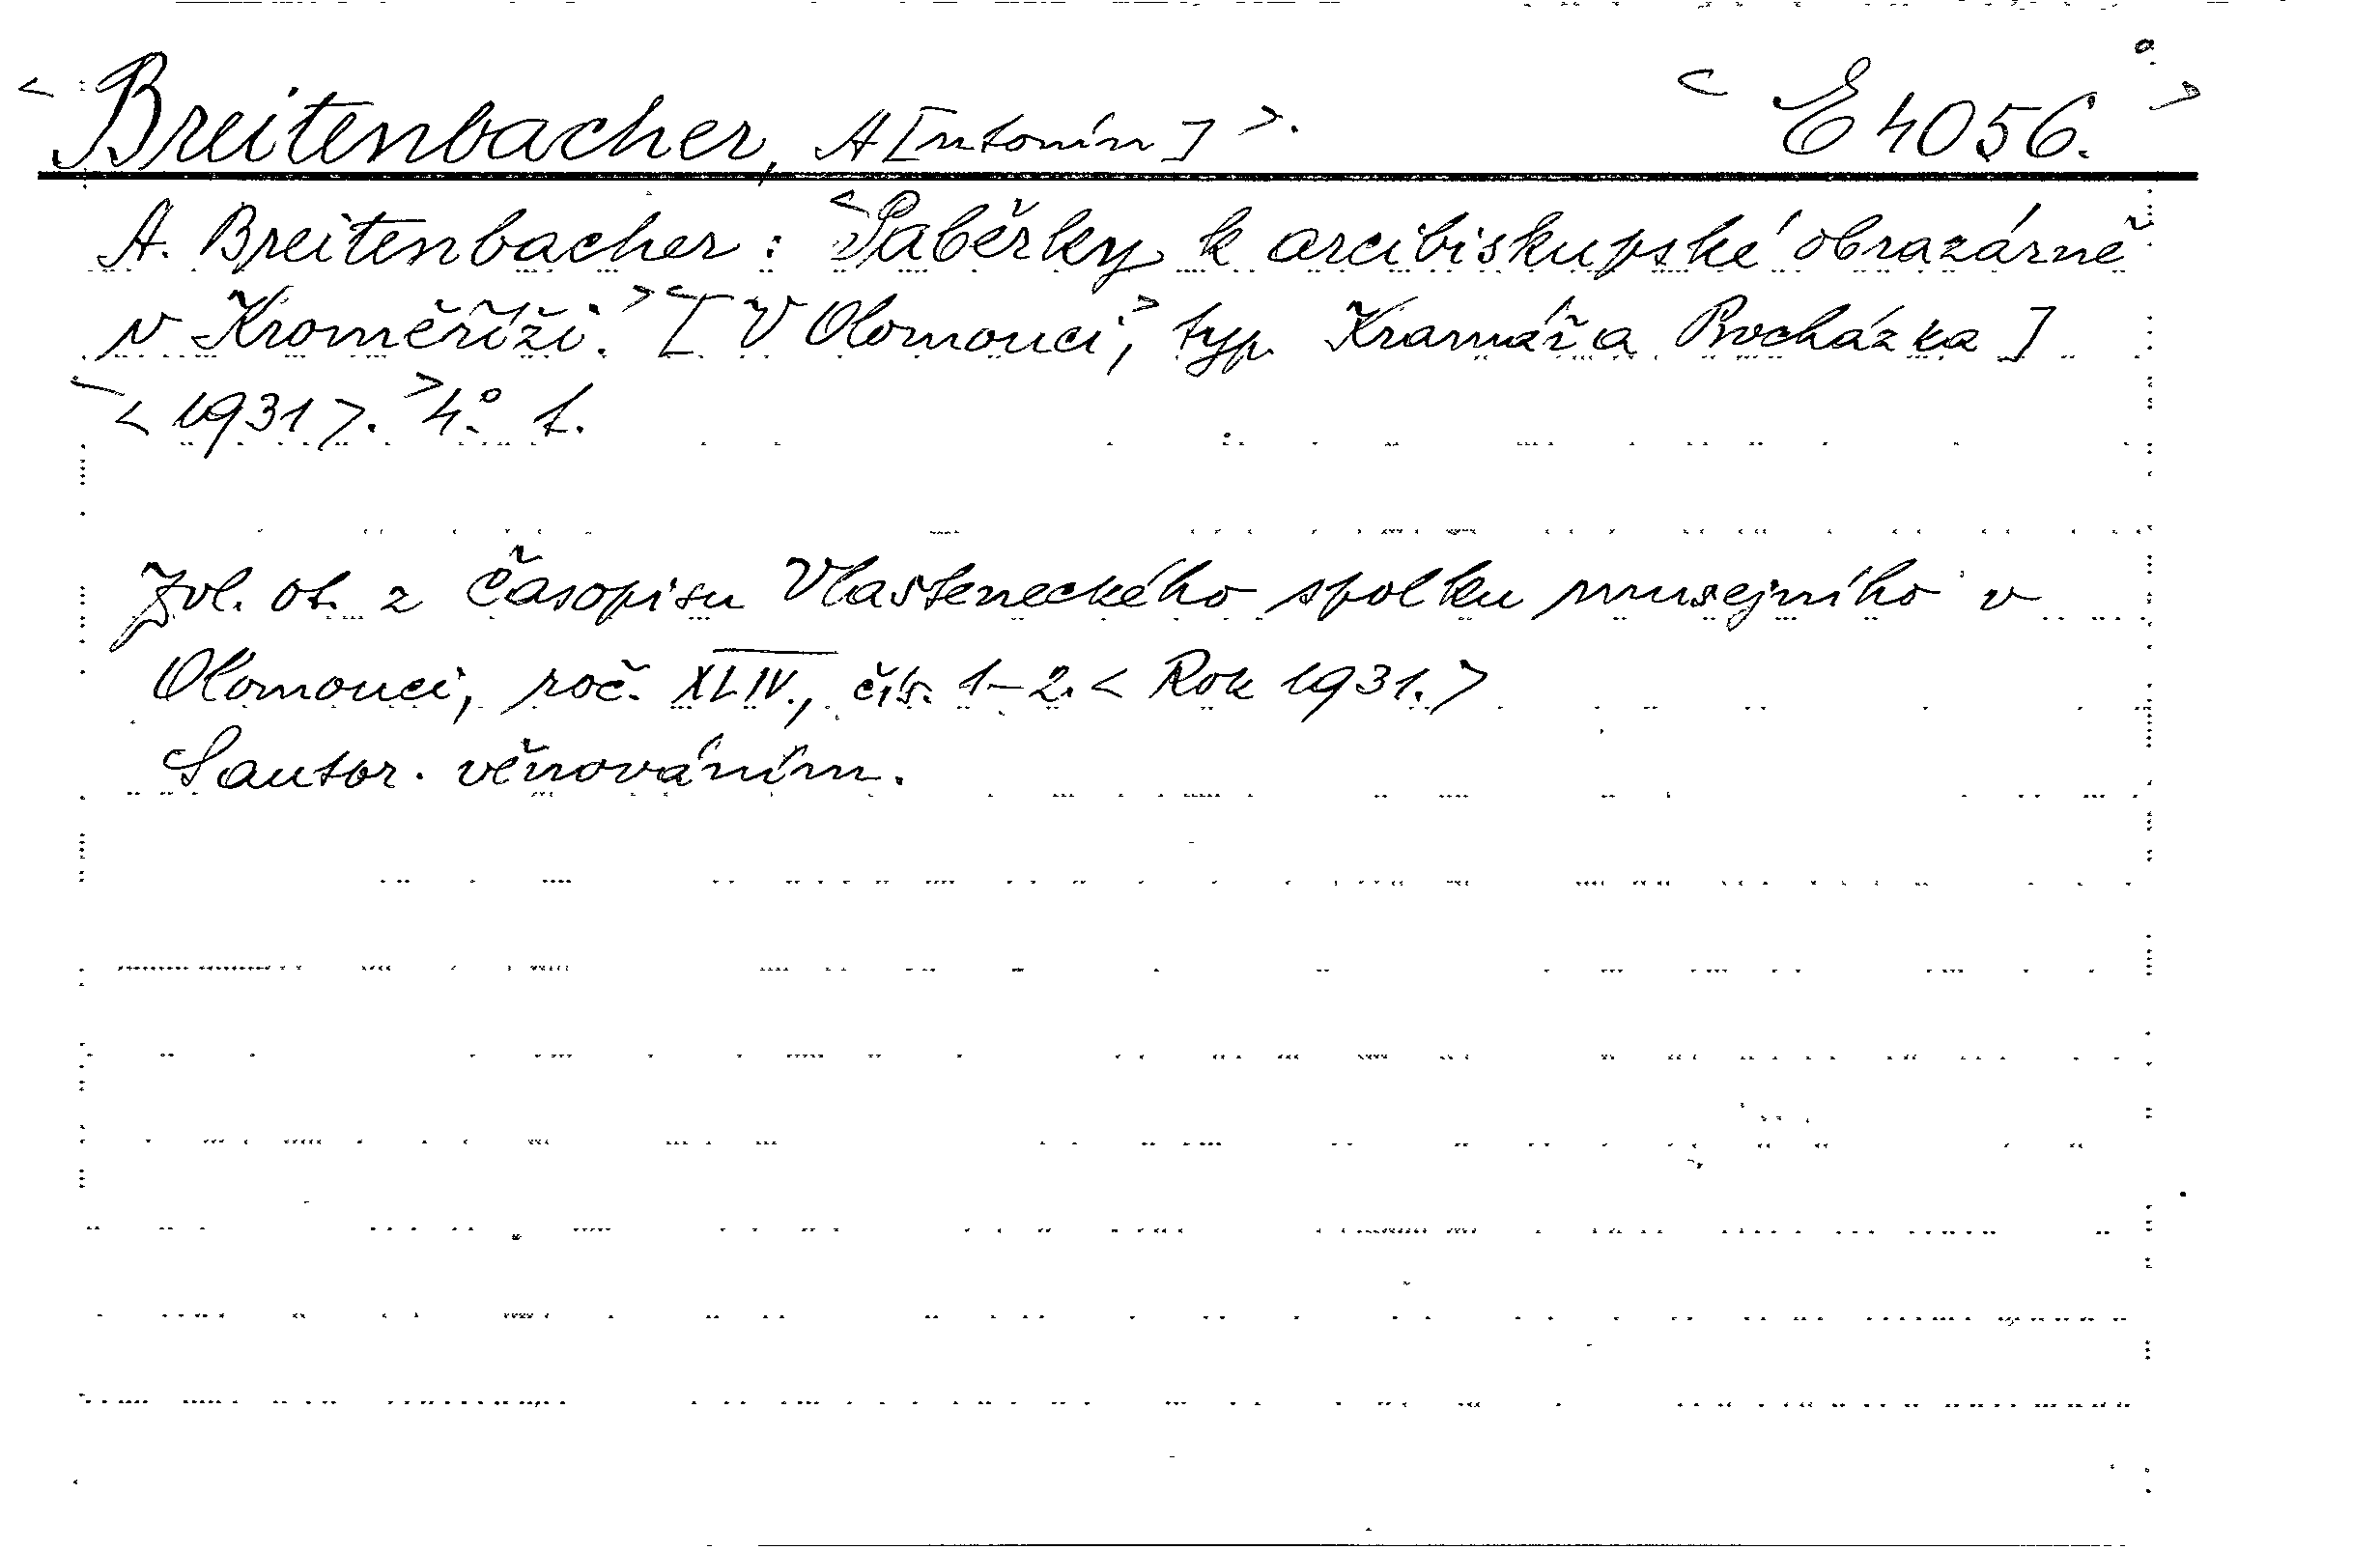 < Breitenbacher, A[ntonín] >. < E 4056. >
A. Breitenbacher: <Paběrky k arcibiskupské obrazárně
v Kroměříži.> <[V Olomouci,> typ. Kramář a Procházka]
< <1931>. > 4.° 1.
Zvl. ot. z Časopisu Vlasteneckého spolku musejního v
Olomouci, roč. XLIV., čís. 1–2. < Rok 1931. >
S autor. věnováním.